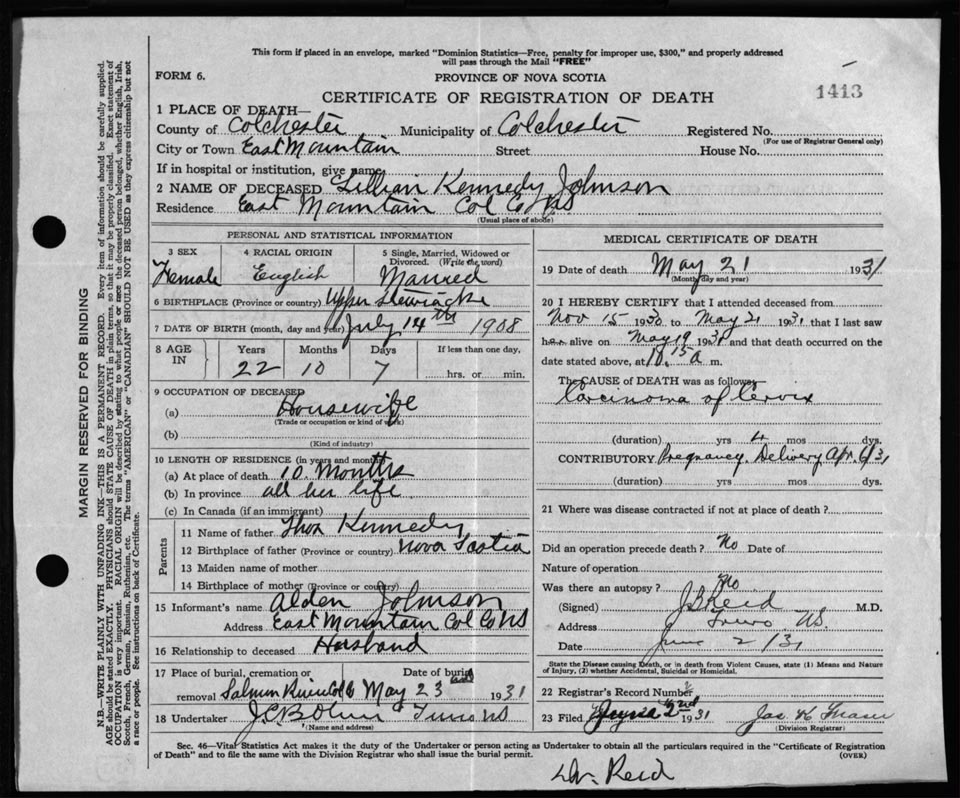 This form if placed in an envelope, marked "Dominion Statistics—Free, penalty for improper use, $300," and properly addressed
will pass through the Mail "FREE"
FORM 6.
PROVINCE OF NOVA SCOTIA
CERTIFICATE OF REGISTRATION OF DEATH
1413
1 PLACE OF DEATH—
County of Colchester Municipality of Colchester Registered No.
(For use of Registrar General only)
City or Town East Mountain Street House No.
If in hospital or institution, give name
2 NAME OF DECEASED Lillian Kennedy Johnson
Residence East Mountain Col Co NS
(Usual place of abode)
PERSONAL AND STATISTICAL INFORMATION
3 SEX 4 RACIAL ORIGIN 5 Single, Married, Widowed or
Divorced. (Write the word)
Female English Married
6 BIRTHPLACE (Province or country) Upper Stewiacke
7 DATE OF BIRTH (month, day and year) July 14th 1908
8 AGE IN Years Months Days If less than one day,
22 10 7 hrs. or min.
9 OCCUPATION OF DECEASED
(a) Housewife
(Trade or occupation or kind of work)
(b)
(Kind of industry)
10 LENGTH OF RESIDENCE (in years and months)
(a) At place of death 10 Months
(b) In province all her life
(c) In Canada (if an immigrant)
Parents
11 Name of father Thos Kennedy
12 Birthplace of father (Province or country) Nova Scotia
13 Maiden name of mother
14 Birthplace of mother (Province or country)
15 Informant's name Alden Johnson
Address East Mountain Col Co NS
16 Relationship to deceased Husband
17 Place of burial, cremation or Date of burial
removal Salmon River May 23 1931
18 Undertaker Truro NS
(Name and address)
MEDICAL CERTIFICATE OF DEATH
19 Date of death May 21 1931
(Month, day and year)
20 I HEREBY CERTIFY that I attended deceased from
Nov 15 1930 to May 21 1931 that I last saw
her alive on May 19 1931 and that death occurred on the
date stated above, at 10.15 a m.
The CAUSE OF DEATH was as follows
Carcinoma of Cervix
(duration) yrs 4 mos dys.
CONTRIBUTORY Pregnancy Delivery Apr. 6/31
(duration) yrs mos dys.
21 Where was disease contracted if not at place of death ?
Did an operation precede death ? No Date of
Nature of operation
Was there an autopsy ? No
(Signed) Reid M.D.
Address Truro NS.
Date June 2/31
State the Disease causing Death, or in death from Violent Causes, state (1) Means and Nature
of Injury, (2) whether Accidental, Suicidal or Homicidal.
22 Registrar's Record Number
23 Filed June 2nd 1931 Jas K Fraser
(Division Registrar)
Sec. 46—Vital Statistics Act makes it the duty of the Undertaker or person acting as Undertaker to obtain all the particulars required in the "Certificate of Registration
of Death" and to file the same with the Division Registrar who shall issue the burial permit.
(OVER)
Dr. Reid
MARGIN RESERVED FOR BINDING
N.B.—WRITE PLAINLY WITH UNFADING INK—THIS IS A PERMANENT RECORD. Every item of information should be carefully supplied.
AGE should be stated EXACTLY. PHYSICIANS should STATE CAUSE OF DEATH in plain terms, so that it may be properly classified. Exact statement of
OCCUPATION is very important. RACIAL ORIGIN will be described by stating to what people or race the deceased person belonged, whether English, Irish,
Scotch, French, German, Russian, Ruthenian, etc. The terms "AMERICAN" or "CANADIAN" SHOULD NOT BE USED as they express citizenship but not
a race or people. See instructions on back of Certificate.